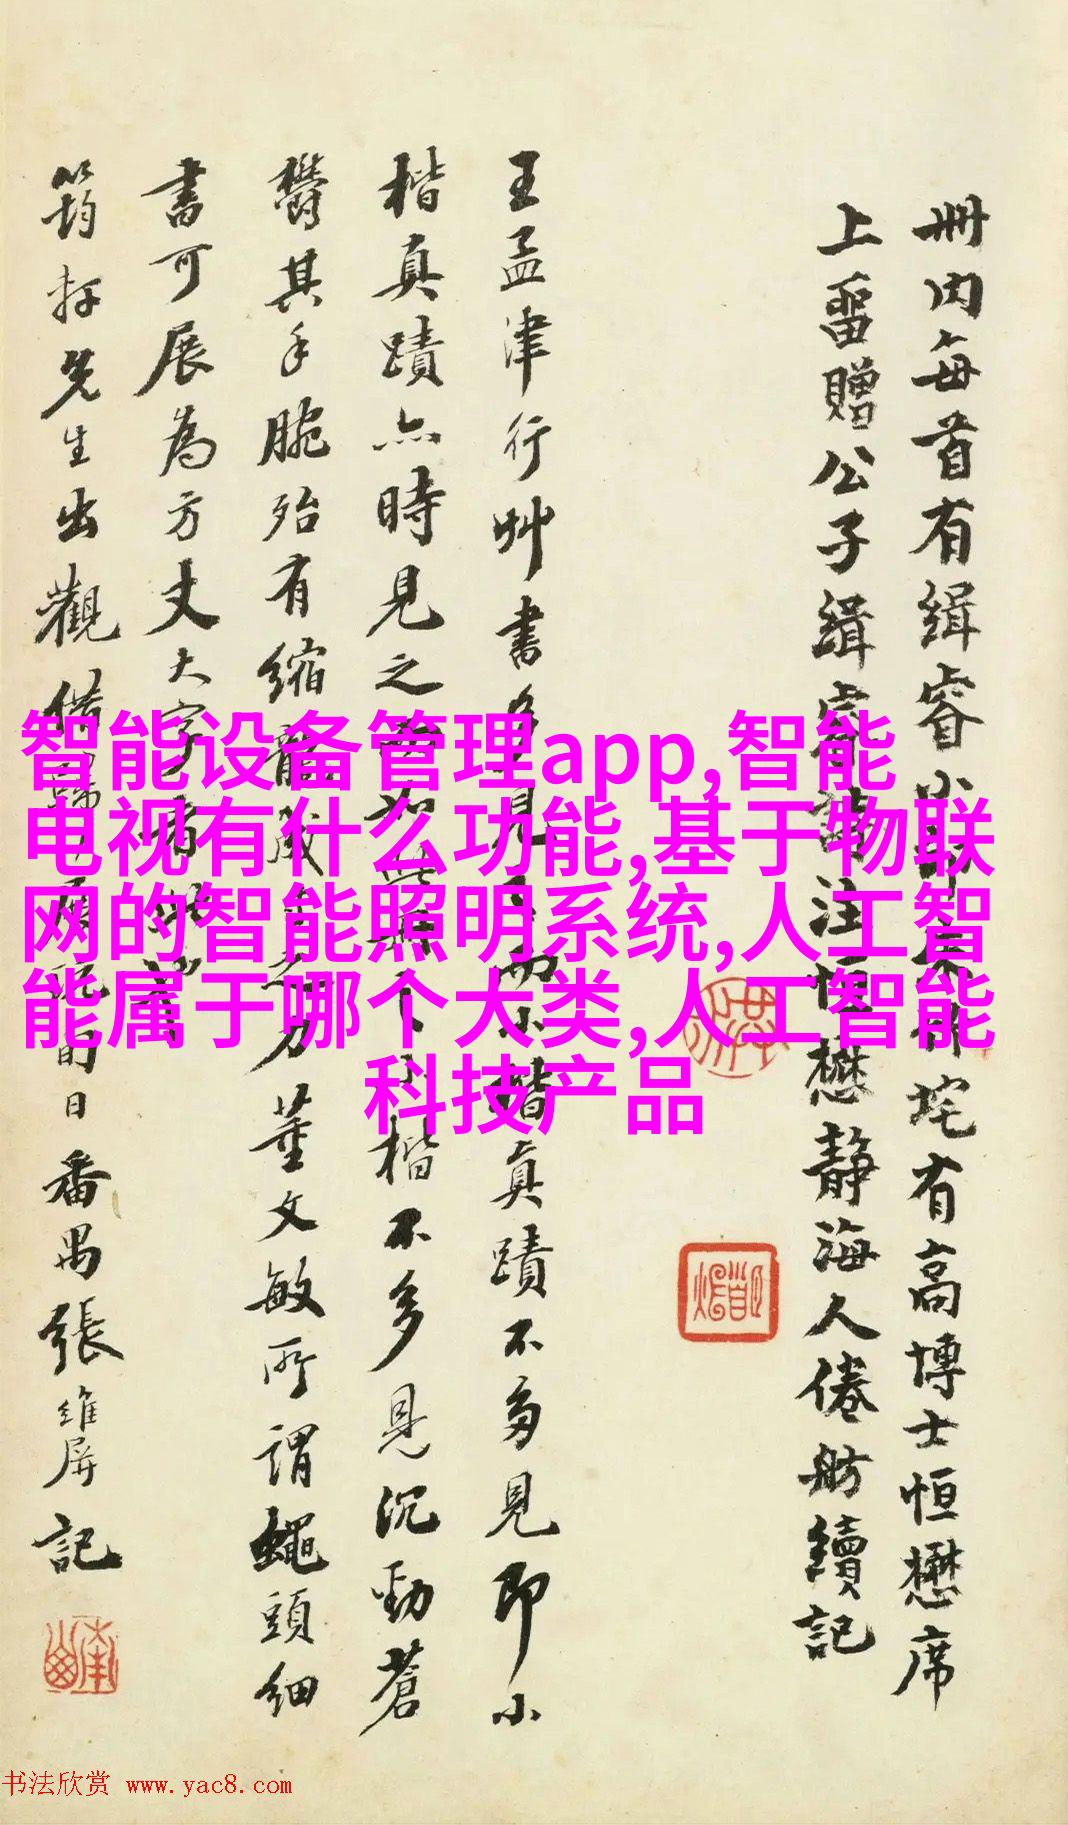 册内每首有缉睿小
有高博士恒懋席
上留赠公子缉
注恒懋静海人倦舫續記
王孟津行艸書多見
真蹟不多見即小
楷真蹟亦時見之
楷不多見沉勁蒼
鬱其手腕殆有縮
董文敏所謂蠅頭細
書可展為方丈大字者
先生出觀借歸
日番禺張維屏記
智能设备管理app,智能
电视有什么功能,基于物联
网的智能照明系统,人工智
能属于哪个大类,人工智能
科技产品
书法欣赏 www.yac8.com